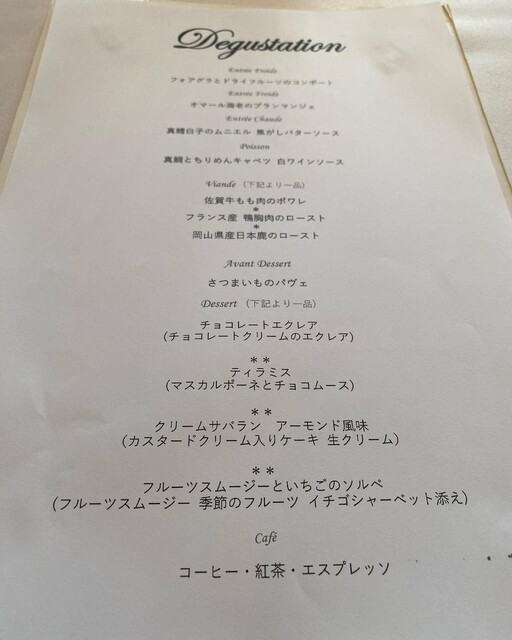 Degustation
Entrée Froide
フォアグラとドライフルーツのコンポート
Entrée Froide
オマール海老のブランマンジェ
Entrée Chaude
真鱈白子のムニエル 焦がしバターソース
Poisson
真鯛とちりめんキャベツ 白ワインソース
Viande (下記より一品)
佐賀牛もも肉のポワレ
*
フランス産 鴨胸肉のロースト
*
岡山県産日本鹿のロースト
Avant Dessert
さつまいものパヴェ
Dessert (下記より一品)
チョコレートエクレア
(チョコレートクリームのエクレア)
**
ティラミス
(マスカルポーネとチョコムース)
**
クリームサバラン アーモンド風味
(カスタードクリーム入りケーキ 生クリーム)
**
フルーツスムージーといちごのソルベ
(フルーツスムージー 季節のフルーツ イチゴシャーベット添え)
Café
コーヒー・紅茶・エスプレッソ